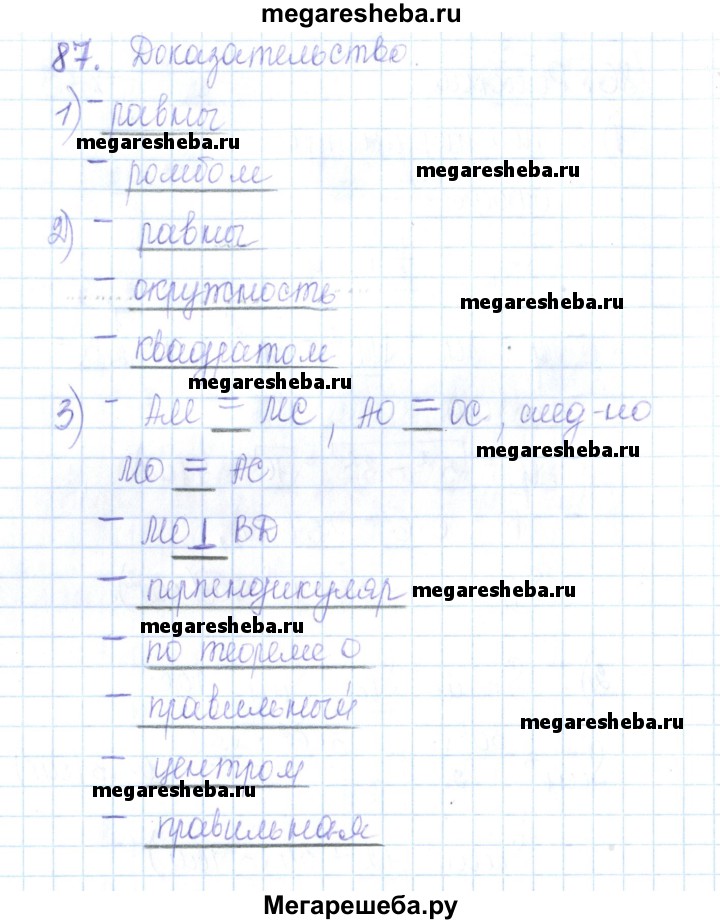 megaresheba.ru
87. Доказательство.
1) – равны
megaresheba.ru
– ромбом
megaresheba.ru
2) – равны
– окружность
megaresheba.ru
– квадратом
megaresheba.ru
3) – AM = MC, AO = OC, след-но
megaresheba.ru
MO = AC
– MO ⊥ ВД
– перпендикуляр
megaresheba.ru
megaresheba.ru
– по теореме о
– правильный
megaresheba.ru
– центром
megaresheba.ru
– правильная
Мегарешеба.ру